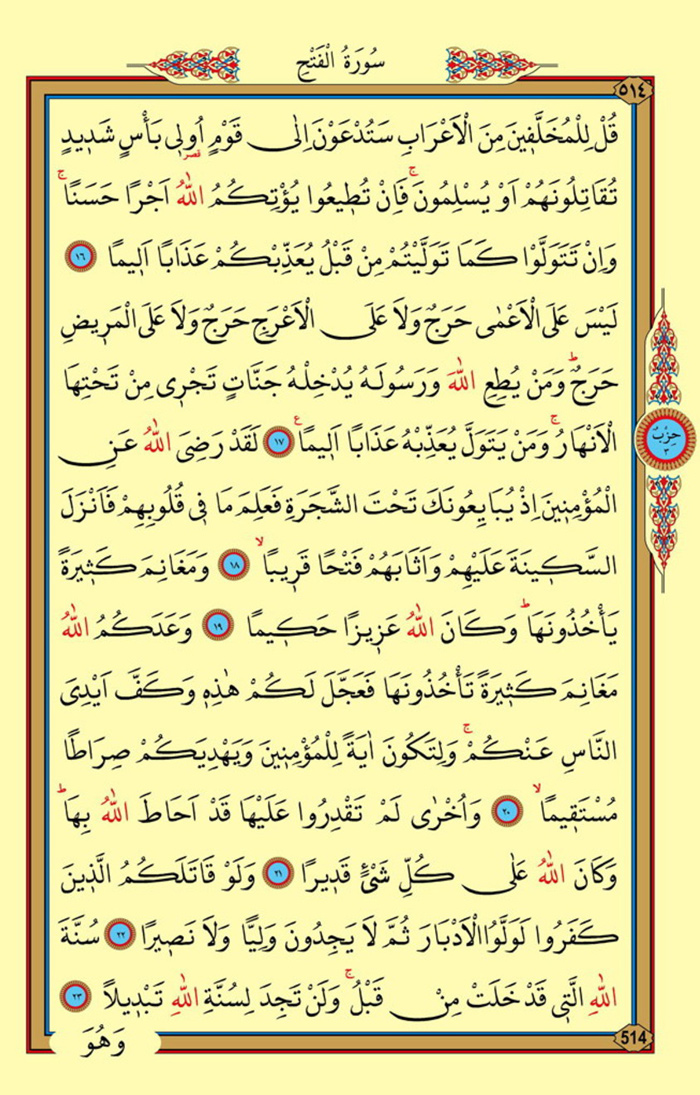 سُورَةُ الْفَتْحِ
٥١٤
قُلْ لِلْمُخَلَّف۪ينَ مِنَ الْاَعْرَابِ سَتُدْعَوْنَ اِلٰى قَوْمٍ اُو۬ل۪ي بَأْسٍ شَد۪يدٍ
قصر
تُقَاتِلُونَهُمْ اَوْ يُسْلِمُونَۚ فَاِنْ تُط۪يعُوا يُؤْتِكُمُ اللّٰهُ اَجْرًا حَسَنًاۚ
وَاِنْ تَتَوَلَّوْا كَمَا تَوَلَّيْتُمْ مِنْ قَبْلُ يُعَذِّبْكُمْ عَذَابًا اَل۪يمًا ﴿١٦﴾
لَيْسَ عَلَى الْاَعْمٰى حَرَجٌ وَلَا عَلَى الْاَعْرَجِ حَرَجٌ وَلَا عَلَى الْمَر۪يضِ
حَرَجٌۜ وَمَنْ يُطِعِ اللّٰهَ وَرَسُولَهُ يُدْخِلْهُ جَنَّاتٍ تَجْر۪ي مِنْ تَحْتِهَا
الْاَنْهَارُۚ وَمَنْ يَتَوَلَّ يُعَذِّبْهُ عَذَابًا اَل۪يمًاع ﴿١٧﴾ لَقَدْ رَضِيَ اللّٰهُ عَنِ
حِزْبٌ
٣
الْمُؤْمِن۪ينَ اِذْ يُبَايِعُونَكَ تَحْتَ الشَّجَرَةِ فَعَلِمَ مَا ف۪ي قُلُوبِهِمْ فَاَنْزَلَ
السَّك۪ينَةَ عَلَيْهِمْ وَاَثَابَهُمْ فَتْحًا قَر۪يبًاۙ ﴿١٨﴾ وَمَغَانِمَ كَث۪يرَةً
يَأْخُذُونَهَاۜ وَكَانَ اللّٰهُ عَز۪يزًا حَك۪يمًا ﴿١٩﴾ وَعَدَكُمُ اللّٰهُ
مَغَانِمَ كَث۪يرَةً تَأْخُذُونَهَا فَعَجَّلَ لَكُمْ هٰذِه۪ وَكَفَّ اَيْدِيَ
النَّاسِ عَنْكُمْۚ وَلِتَكُونَ اٰيَةً لِلْمُؤْمِن۪ينَ وَيَهْدِيَكُمْ صِرَاطًا
مُسْتَق۪يمًاۙ ﴿٢٠﴾ وَاُخْرٰى لَمْ تَقْدِرُوا عَلَيْهَا قَدْ اَحَاطَ اللّٰهُ بِهَاۜ
وَكَانَ اللّٰهُ عَلٰى كُلِّ شَيْءٍ قَد۪يرًا ﴿٢١﴾ وَلَوْ قَاتَلَكُمُ الَّذ۪ينَ
كَفَرُوا لَوَلَّوُا الْاَدْبَارَ ثُمَّ لَا يَجِدُونَ وَلِيًّا وَلَا نَص۪يرًا ﴿٢٢﴾ سُنَّةَ
اللّٰهِ الَّت۪ي قَدْ خَلَتْ مِنْ قَبْلُۚ وَلَنْ تَجِدَ لِسُنَّةِ اللّٰهِ تَبْد۪يلًا ﴿٢٣﴾
وَهُوَ
514